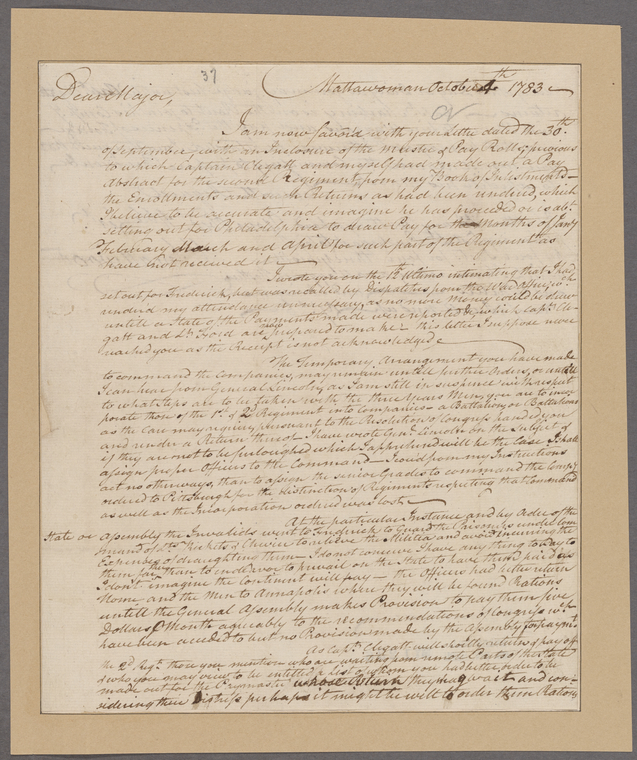 37
Mattawoman October 4th 1783
Dear Major,
I am now favord with your Letter dated the 30th
of September, with an Inclosure of the Muster & Pay Rolls, previous
to which Captain Clagatt and myself had made out a Pay
Abstract for the second Regiment, from my Book of Inlistments
the Enrollments and such Returns as had been rendered, which
I believe to be accurate and imagine he has proceeded or is abt
setting out for Philadelphia to draw Pay for the Months of Jany
February March and April for such part of the Regiment as
have not received it
I wrote you on the Ulttimo intimating that I had
set out for Frederick, but was recalled by Dispatches from the War Office, wch
rendered my attendance unnecessary, as no more Money could be drawn
untill a State of the Payments made were reported, which Capt. Cla-
gatt and Lt. Ford are prepared to make this letter I suppose never
reached you as the Receipt is not acknowledged
The Temporary Arrangement you have made
to command the Companies, may remain untill further Orders, or untill
I can hear from General Lincoln, as I am still in suspence with respect
to what steps are to be taken with the three Years Men, you are to incor-
porate those of the 1st & 2d Regiment into Companies a Battalion, or Battalions
as the Case may require, pursuant to the Resolution of Congress handed you
and render a Return thereof I have wrote Genl. Lincoln on the Subject of
if they are not to be furloughed which I apprehend will be the Case I shall
assign proper Officers to the Command I could from my Instructions
act no otherways, than to assign the senior Grades to command the Compy
ordered to Pittsburgh, for the distinction of Regiments respecting that command
as well as the Incorporation ordered was lost
At the particular Instance and by order of the
State or Assembly the Invalids went to Fredrick to Guard the Prisoners under Com-
mand of Lts Rickets & Chever to relieve the Militia and avoid incurring the
Expence of draughting them I do not conceive I have any thing to say to
them for them to endeavor to prevail on the State to have them paid as
I don't imagine the Continent will pay the Officers had better return
Home and the Men to Annapolis where they will be found Rations
untill the General Assembly makes Provision to pay them five
Dollars Month agreeably to the recommendations of Congress wch
have been acceded to but no Provision made by the Assembly for paymt
As Capt. Clagatt will shortly return & pay off
the 2d Regt. those you mention who are waiting from remote Parts of the State
& who you may view to be intitled a List of whom you had better order to be
made out for the Paymaster whose Return they may wait and con-
sidering their Distress perhaps it might be well to order them Rations